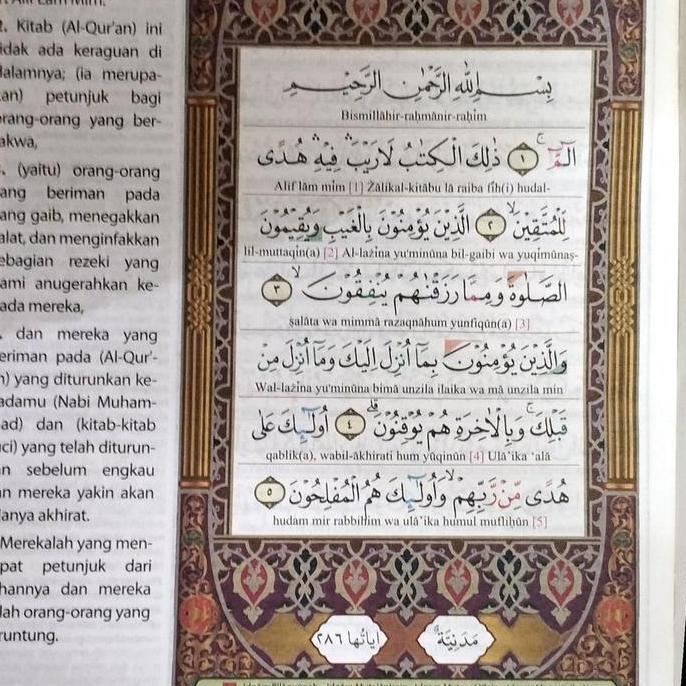 2. Kitab (Al-Qur'an) ini
tidak ada keraguan di
dalamnya; (ia merupa-
kan) petunjuk bagi
orang-orang yang ber-
takwa,
(yaitu) orang-orang
yang beriman pada
yang gaib, menegakkan
salat, dan menginfakkan
sebagian rezeki yang
Kami anugerahkan ke-
pada mereka,
dan mereka yang
beriman pada (Al-Qur'-
an) yang diturunkan ke-
padamu (Nabi Muham-
mad) dan (kitab-kitab
suci) yang telah diturun-
kan sebelum engkau
dan mereka yakin akan
adanya akhirat.
Merekalah yang men-
dapat petunjuk dari
Tuhannya dan mereka
itulah orang-orang yang
beruntung.
بِسْمِ اللّٰهِ الرَّحْمٰنِ الرَّحِيْمِ
Bismillāhir-raḥmānir-raḥīm
الۤمّۤ ۚ ١ ذٰلِكَ الْكِتٰبُ لَارَيْبَۛ فِيْهِۛ هُدًى
Alif lām mīm [1] Żālikal-kitābu lā raiba fīh(i) hudal-
لِّلْمُتَّقِيْنَۙ ٢ الَّذِيْنَ يُؤْمِنُوْنَ بِالْغَيْبِ وَيُقِيْمُوْنَ
lil-muttaqīn(a) [2] Al-lażīna yu'minūna bil-gaibi wa yuqīmūnaṣ-
الصَّلٰوةَ وَمِمَّا رَزَقْنٰهُمْ يُنْفِقُوْنَۙ ٣
ṣalāta wa mimmā razaqnāhum yunfiqūn(a) [3]
وَالَّذِيْنَ يُؤْمِنُوْنَ بِمَآ اُنْزِلَ اِلَيْكَ وَمَآ اُنْزِلَ مِنْ
Wal-lażīna yu'minūna bimā unzila ilaika wa mā unzila min
قَبْلِكَۚ وَبِالْاٰخِرَةِ هُمْ يُوْقِنُوْنَۗ ٤ اُولٰۤىِٕكَ عَلٰى
qablik(a), wabil-ākhirati hum yūqinūn [4] Ulā'ika 'alā
هُدًى مِّنْ رَّبِّهِمْۙ وَاُولٰۤىِٕكَ هُمُ الْمُفْلِحُوْنَ ٥
hudam mir rabbihim wa ulā'ika humul mufliḥūn [5]
مَدَنِيَّةٌ اٰيَاتُهَا ٢٨٦